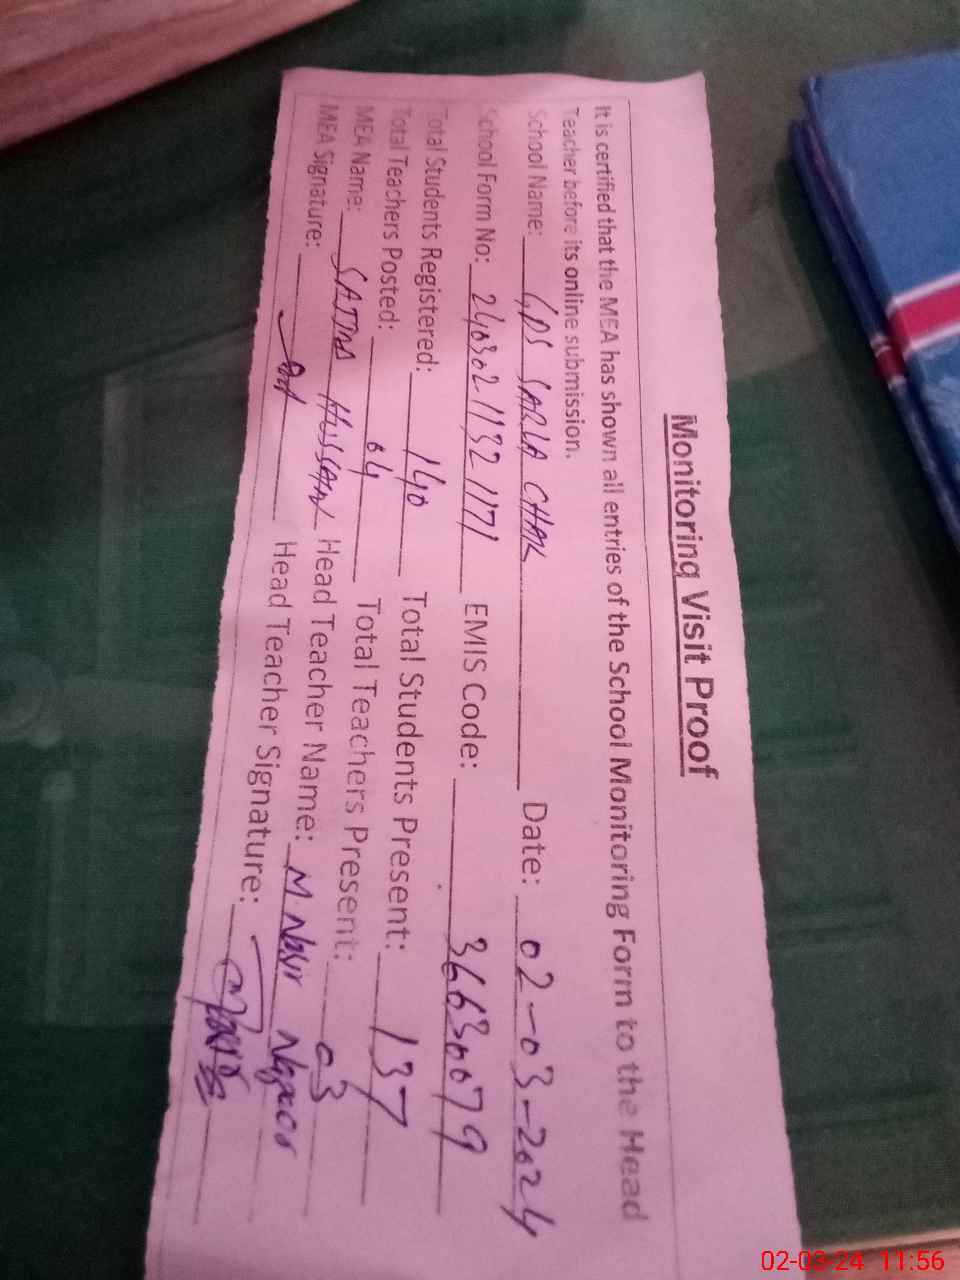 Monitoring Visit Proof
It is certified that the MEA has shown all entries of the School Monitoring Form to the Head
Teacher before its online submission.
School Name: GPS SARLA CHAK Date: 02-03-2024
School Form No: 2403021132 1171 EMIS Code: 36630079
Total Students Registered: 140 Total Students Present: 137
Total Teachers Posted: 04 Total Teachers Present: 03
MEA Name: HUSSAIN Head Teacher Name: M. Nasir
MEA Signature: Head Teacher Signature:
02-03-24 11:56